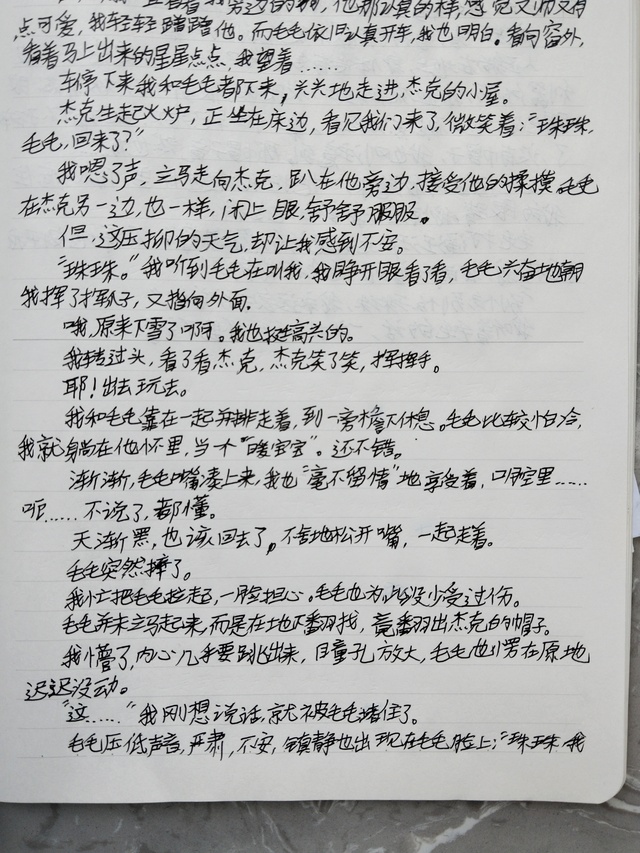 旁边的狗，他那认真的样，感觉又帅又有
点可爱，我轻轻蹭蹭他。而毛毛依旧认真开车，我也明白。看向窗外，
看着马上出来的星星点点，我望着……
车停下来我和毛毛都下来，兴兴地走进杰克的小屋。
杰克生起火炉，正坐在床边，看见我们来了，微笑着："珠珠，
毛毛，回来了？"
我嗯了声，立马走向杰克，趴在他旁边，接受他的揉摸。毛毛
在杰克另一边，也一样，闭上眼，舒舒服服。
但，这压抑的天气，却让我感到不安。
"珠珠。"我听到毛毛在叫我，我睁开眼看了看，毛毛兴奋地朝
我挥了挥爪子，又指向外面.
哦，原来下雪了啊。我也挺高兴的。
我转过头，看了看杰克，杰克笑了笑，挥挥手。
耶！出去玩去。
我和毛毛靠在一起并排走着，到一旁檐下休息。毛毛比较怕冷，
我就躺在他怀里，当个"暖宝宝"。还不错。
渐渐，毛毛嘴凑上来，我也"毫不留情"地享受着，口腔里……
呃……不说了，都懂。
天渐黑，也该回去了，不舍地松开嘴，一起走着。
毛毛突然摔了。
我忙把毛毛拉起，一脸担心。毛毛也为此没少受过伤。
毛毛并未立马起来，而是在地下翻找，竟翻出杰克的帽子。
我懵了，内心几乎要跳出来，目童孔放大，毛毛也愣在原地
迟迟没动。
"这……"我刚想说话，就被毛毛堵住了。
毛毛压低声音，严肃，不安，镇静也出现在毛毛脸上："珠珠，我